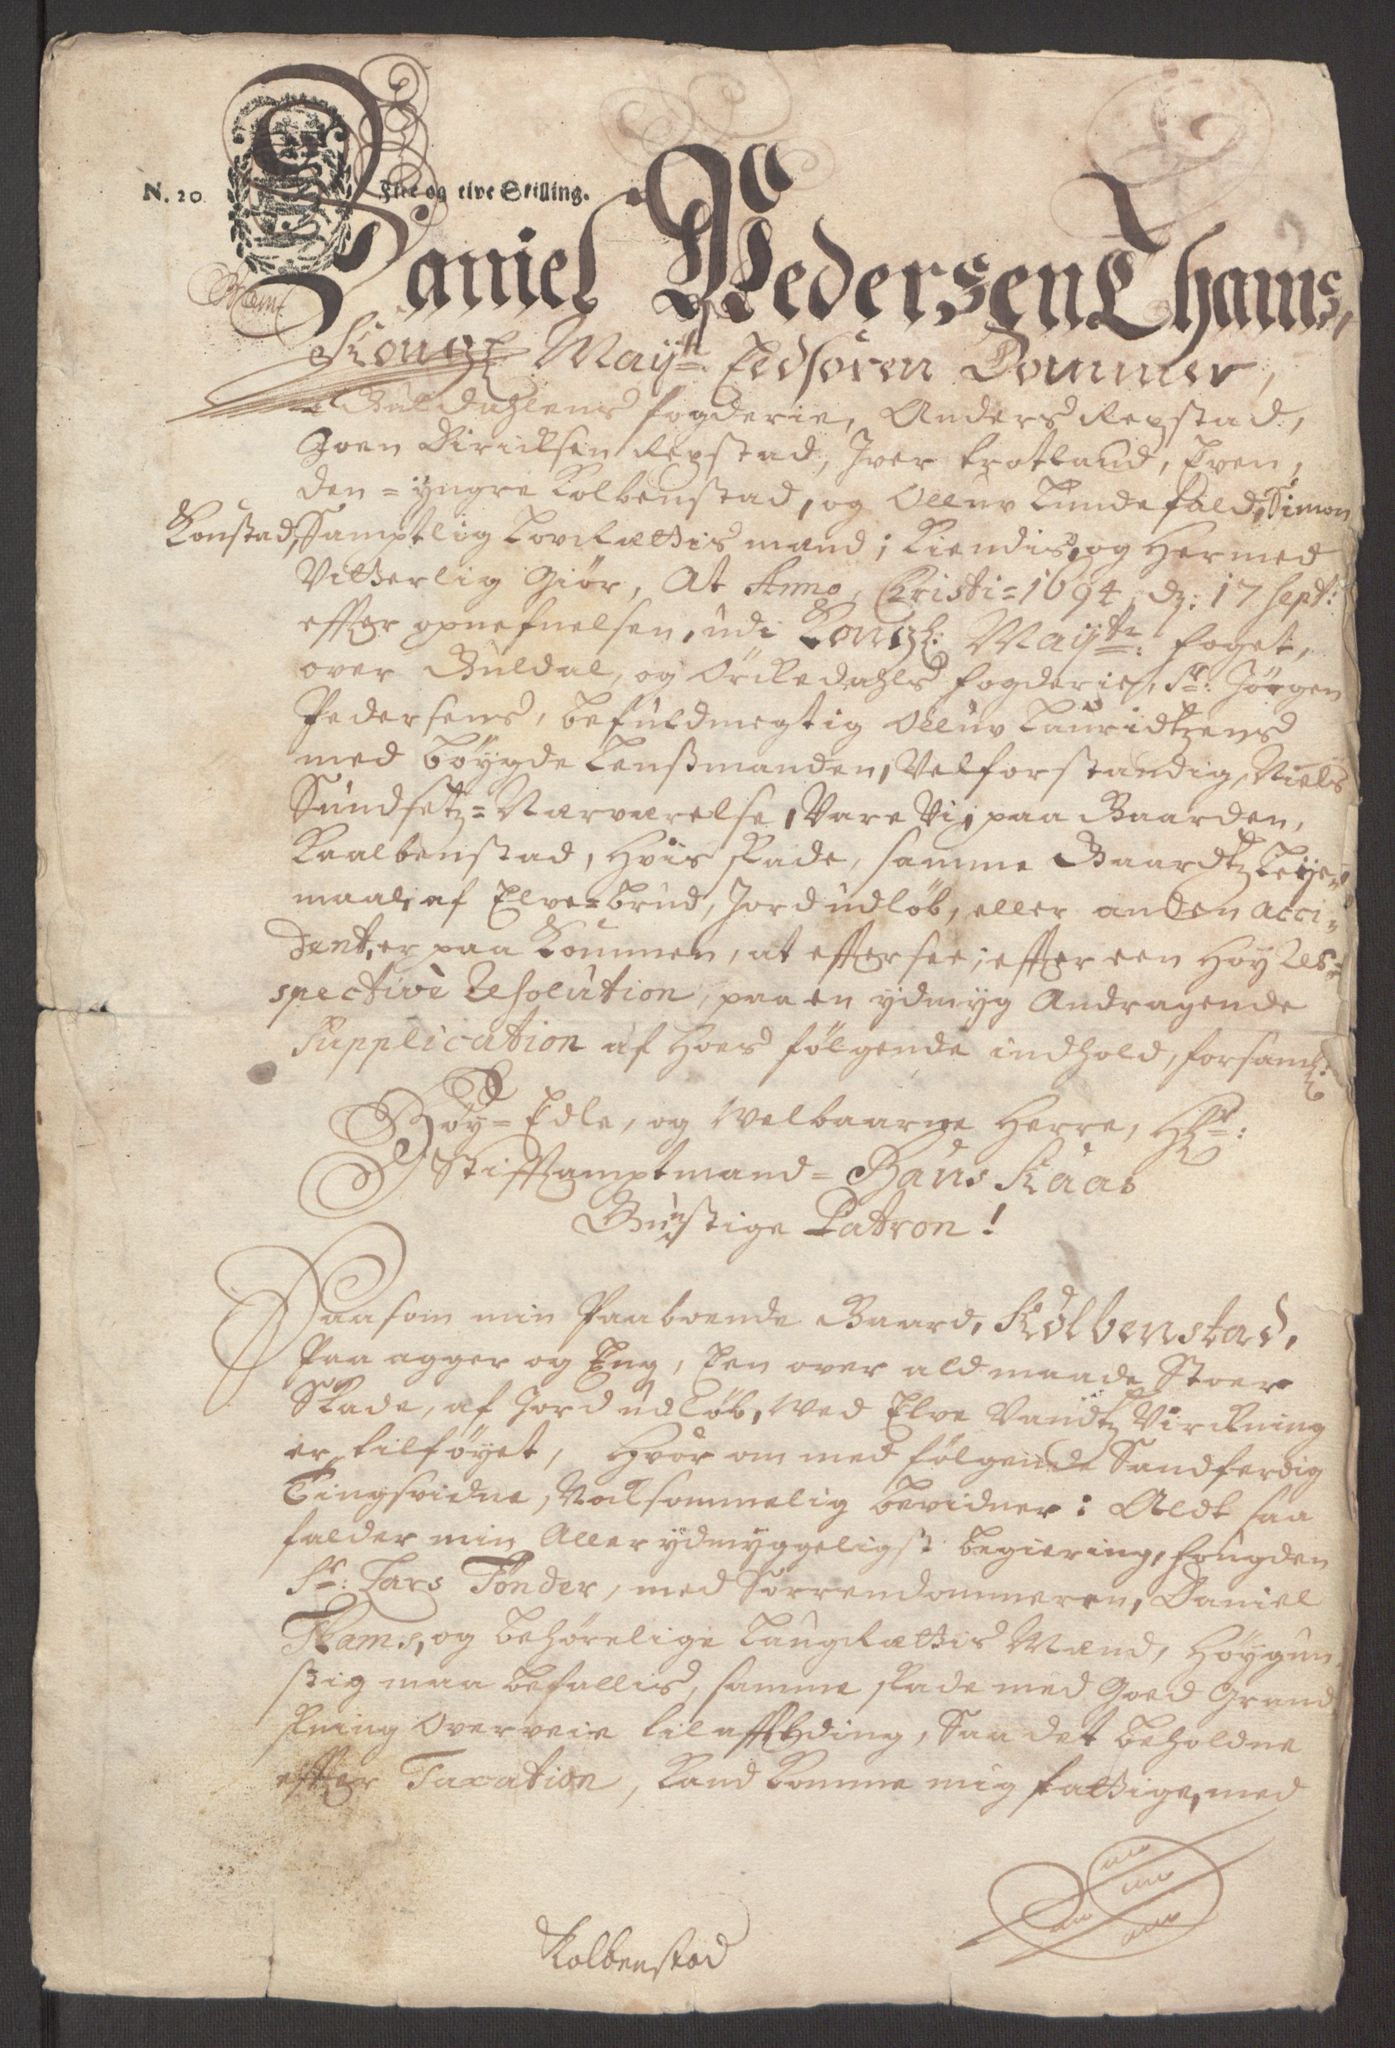 N. 20. Fire og tive Skilling.
Daniel Pedersen Thams,
Kongl. Mayts. Edsoren Dommer,
i Guldahlens fogderie, Anders Repstad,
Joen Dirichsen Repstad, Iver Krotland, Even,
den=yngre Kolbenstad, og Olluv Lundefald, Simon
Konstad, Samptlig Lovrættis mænd; Kiendis, og hermed
Vitterlig Giør, At Anno, Christi=1694, dz: 17 Sept:
effter opnefnelsen, udi Kongl: Mayts: foget,
over Guldal, og Örkedahls fogderier, Sr: Jörgen
Pedersens, befuldmegtig Olluv Lauridtzens
med böygde Lenßmanden, Velforstandig, Niels
Sundsetz=Nærværelse, Vare Vi, paa Gaarden,
Kaalbenstad, hvis skade, samme Gaardtz Leye=
maal, af Elve=brud, Jordudlöb, eller anden Acci=
dent, er paa kommen, at effter see; effter een Höy Res=
spective Resolution, paa en ydmyg Andragende
Supplication af hoes fölgende indhold, forsaml:
Höy=Edle, og Welbaarne Herre, Hr:
Stifftamptmand=Hans Kaas
Gunstige Patron!
Saasom min Paaboende Gaard, Kolbenstad,
Paa agger og Eng, Een over ald maade Stoer
Skade, af Jordudlöb, wed Elve Vandtz Virckning
er tilföyet, hvor om med fölgende Sandferdig
Tingsvidne, Noksommelig bevidner: Aldt saa
falder min Aller ydmyggeligst begiering, fougden
Sr: Lars Tönder, med Sorrendommeren, Daniel
Thams, og behørelige Laugrættis Mænd, höygun
stig maa befallis, samme skade med Goed Grand
skning Overveie til affkding, Saa det beholdne
effter Taxation, kand komme mig fattige, med
Kolbenstad